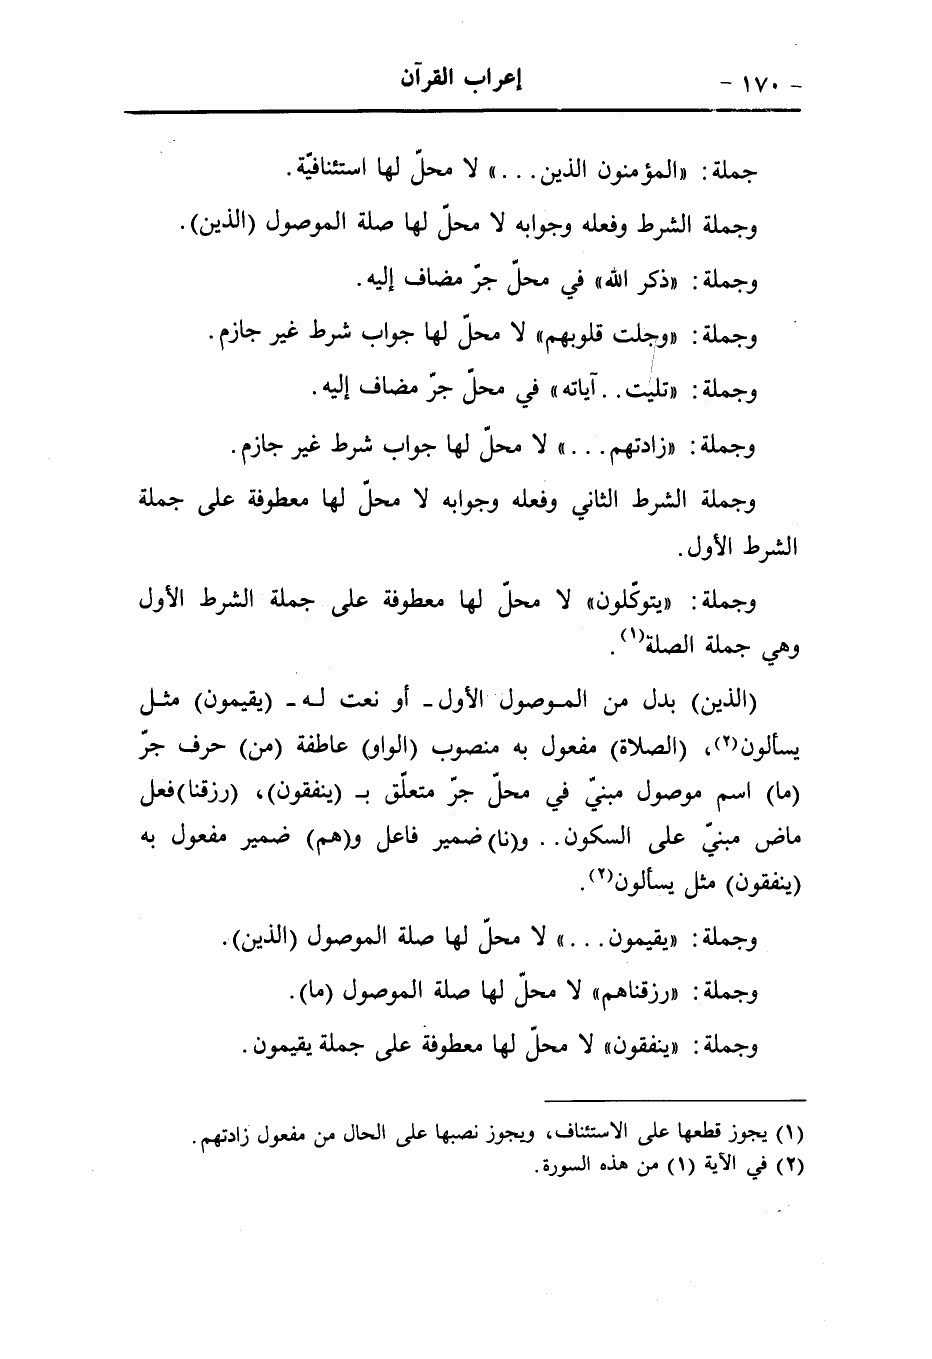 - ١٧٠ -
إعراب القرآن
جملة: «المؤمنون الذين...» لا محلّ لها استئنافيّة.
وجملة الشرط وفعله وجوابه لا محلّ لها صلة الموصول (الذين).
وجملة: «ذكر الله» في محلّ جرّ مضاف إليه.
وجملة: «وجلت قلوبهم» لا محلّ لها جواب شرط غير جازم.
وجملة: «تليت.. آياته» في محلّ جرّ مضاف إليه.
وجملة: «زادتهم...» لا محلّ لها جواب شرط غير جازم.
وجملة الشرط الثاني وفعله وجوابه لا محلّ لها معطوفة على جملة
الشرط الأول.
وجملة: «يتوكّلون» لا محلّ لها معطوفة على جملة الشرط الأول
وهي جملة الصلة(١).
(الذين) بدل من الموصول الأول - أو نعت له - (يقيمون) مثل
يسألون(٢)، (الصلاة) مفعول به منصوب (الواو) عاطفة (من) حرف جرّ
(ما) اسم موصول مبنيّ في محلّ جرّ متعلّق بـ (ينفقون)، (رزقنا) فعل
ماض مبنيّ على السكون.. و(نا) ضمير فاعل و(هم) ضمير مفعول به
(ينفقون) مثل يسألون(٢).
وجملة: «يقيمون...» لا محلّ لها صلة الموصول (الذين).
وجملة: «رزقناهم» لا محلّ لها صلة الموصول (ما).
وجملة: «ينفقون» لا محلّ لها معطوفة على جملة يقيمون.
(١) يجوز قطعها على الاستئناف، ويجوز نصبها على الحال من مفعول زادتهم.
(٢) في الآية (١) من هذه السورة.